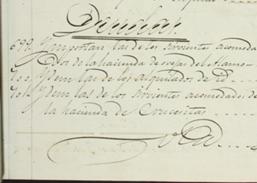 Deudas
699. Ymportan las de los sirvientes acomoda
dos de la hacienda de ovejas del Alamo
700. Ydem las de los Alquilados de Yd.
701. Ydem las de los sirvientes acomodados de
la hacienda de Crucesitas